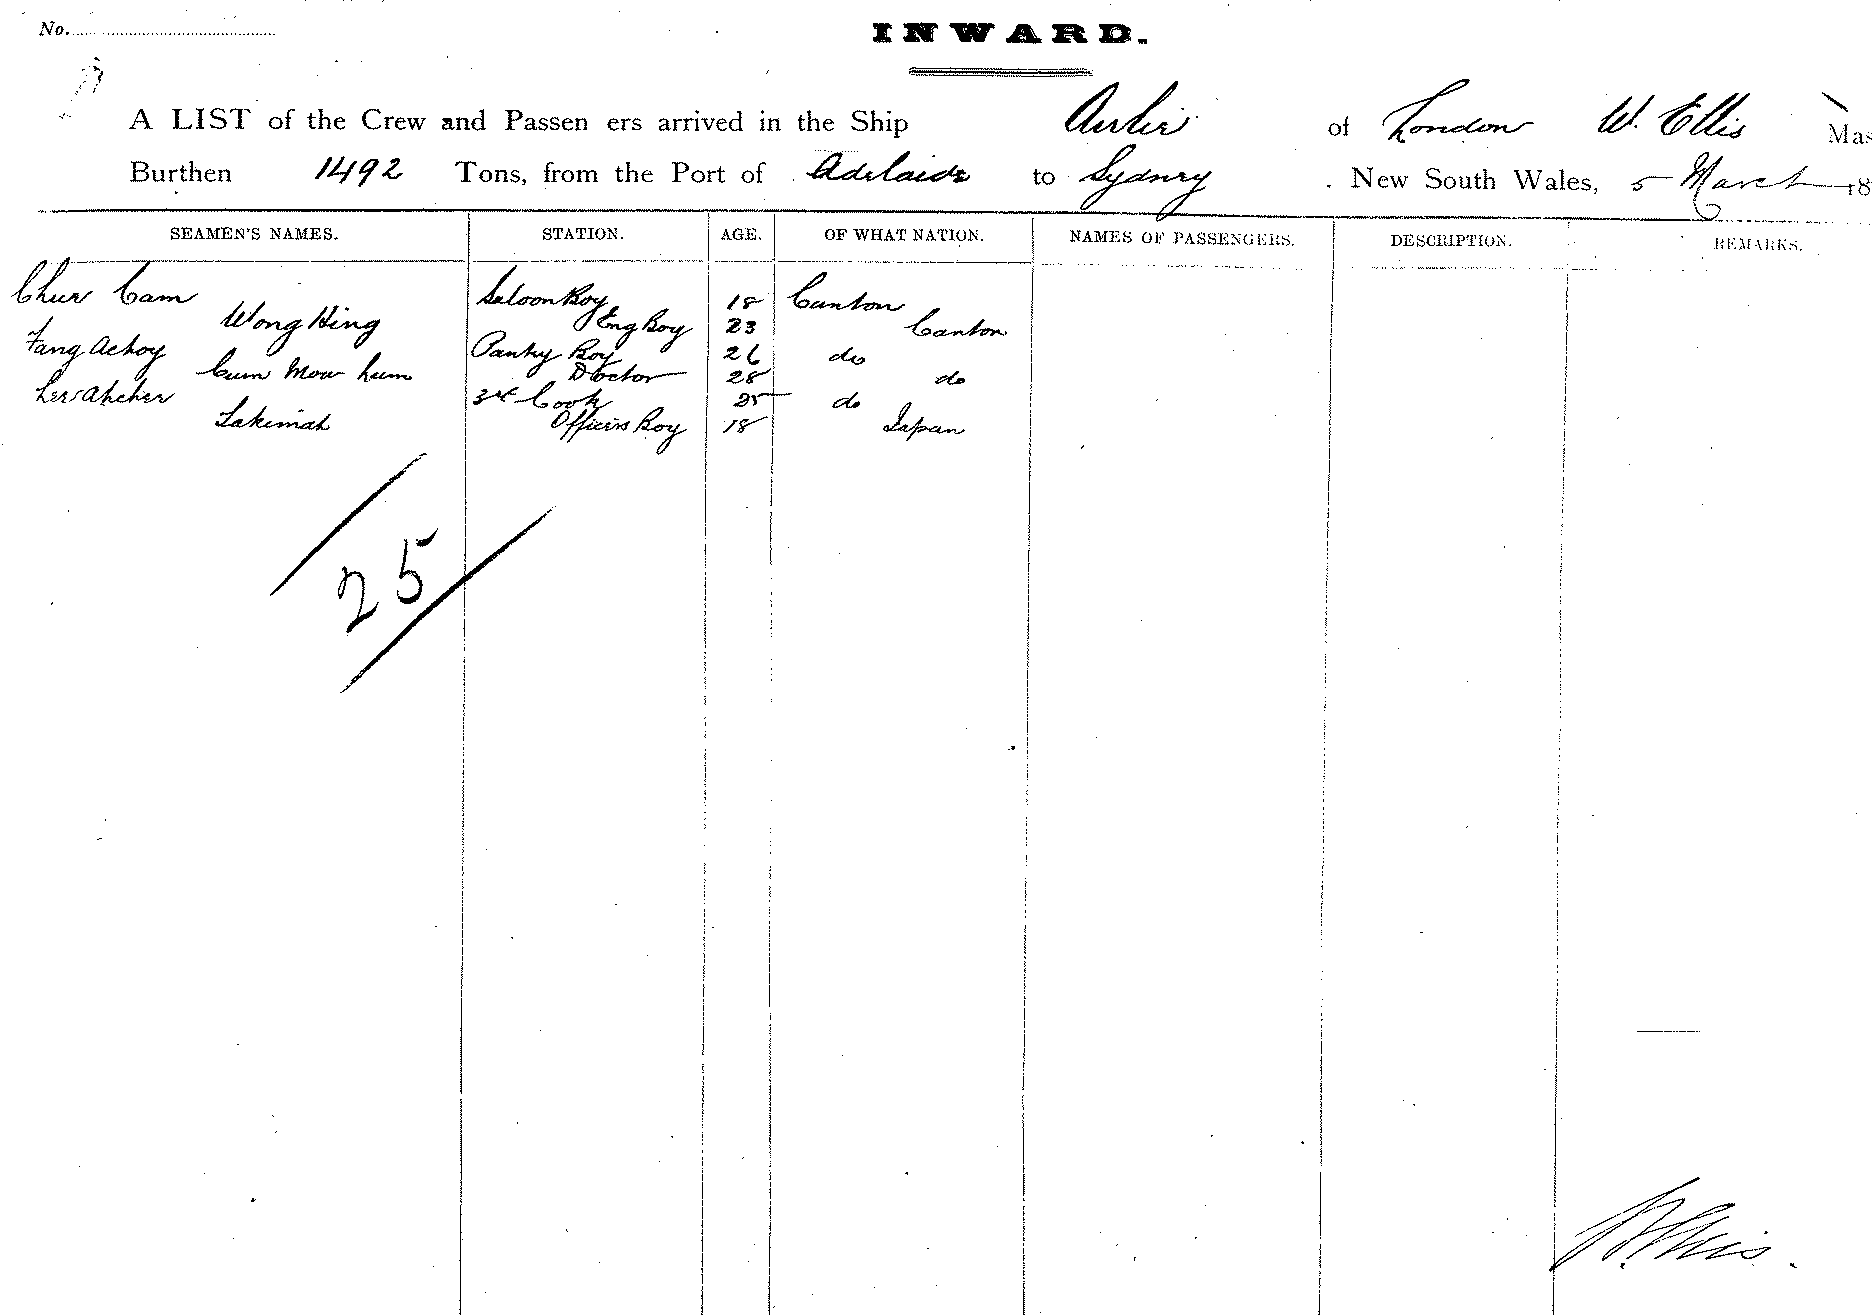 No.
INWARD.
A LIST of the Crew and Passen ers arrived in the Ship Airlie of London W. Ellis Mas
Burthen 1492 Tons, from the Port of Adelaide to Sydney . New South Wales, 5 March 18
SEAMEN'S NAMES. STATION. AGE. OF WHAT NATION. NAMES OF PASSENGERS. DESCRIPTION. REMARKS.
Cam Saloon Boy 18 Canton
Wong Hing Eng Boy 23 Canton
Pantry Boy 26 do
Cum Mow Lum Doctor 28 do
3rd Cook 25 do
Officers Boy 18 Japan
25
W. Ellis.